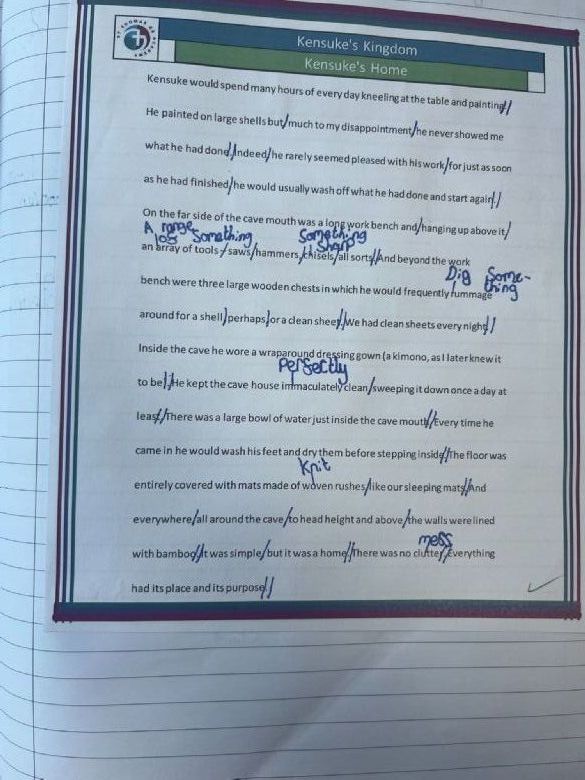 Kensuke's Kingdom
Kensuke's Home
Kensuke would spend many hours of every day kneeling at the table and painting//
He painted on large shells but/much to my disappointment/he never showed me
what he had done//Indeed/he rarely seemed pleased with his work/for just as soon
as he had finished/he would usually wash off what he had done and start again//
On the far side of the cave mouth was a long work bench and/hanging up above it/
A range
lots Something Something
Sharp
an array of tools/saws/hammers/chisels/all sorts//And beyond the work
Dig Some-
thing
bench were three large wooden chests in which he would frequently rummage
around for a shell/perhaps/or a clean sheet//We had clean sheets every night//
Inside the cave he wore a wraparound dressing gown (a kimono, as I later knew it
Perfectly
to be)//He kept the cave house immaculately clean/sweeping it down once a day at
least//There was a large bowl of water just inside the cave mouth//Every time he
came in he would wash his feet and dry them before stepping inside//The floor was
Knit
entirely covered with mats made of woven rushes/like our sleeping mats//And
everywhere/all around the cave/to head height and above/the walls were lined
with bamboo//It was simple/but it was a home//There was no clutter//Everything
mess
had its place and its purpose//